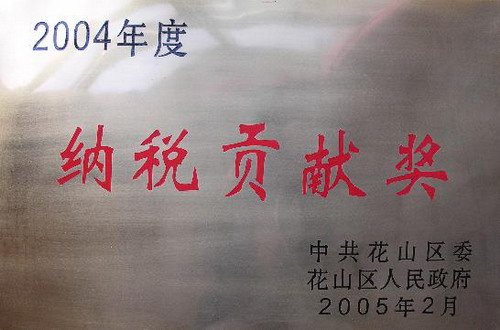 2004年度
纳税贡献奖
中共花山区委
花山区人民政府
2005年2月